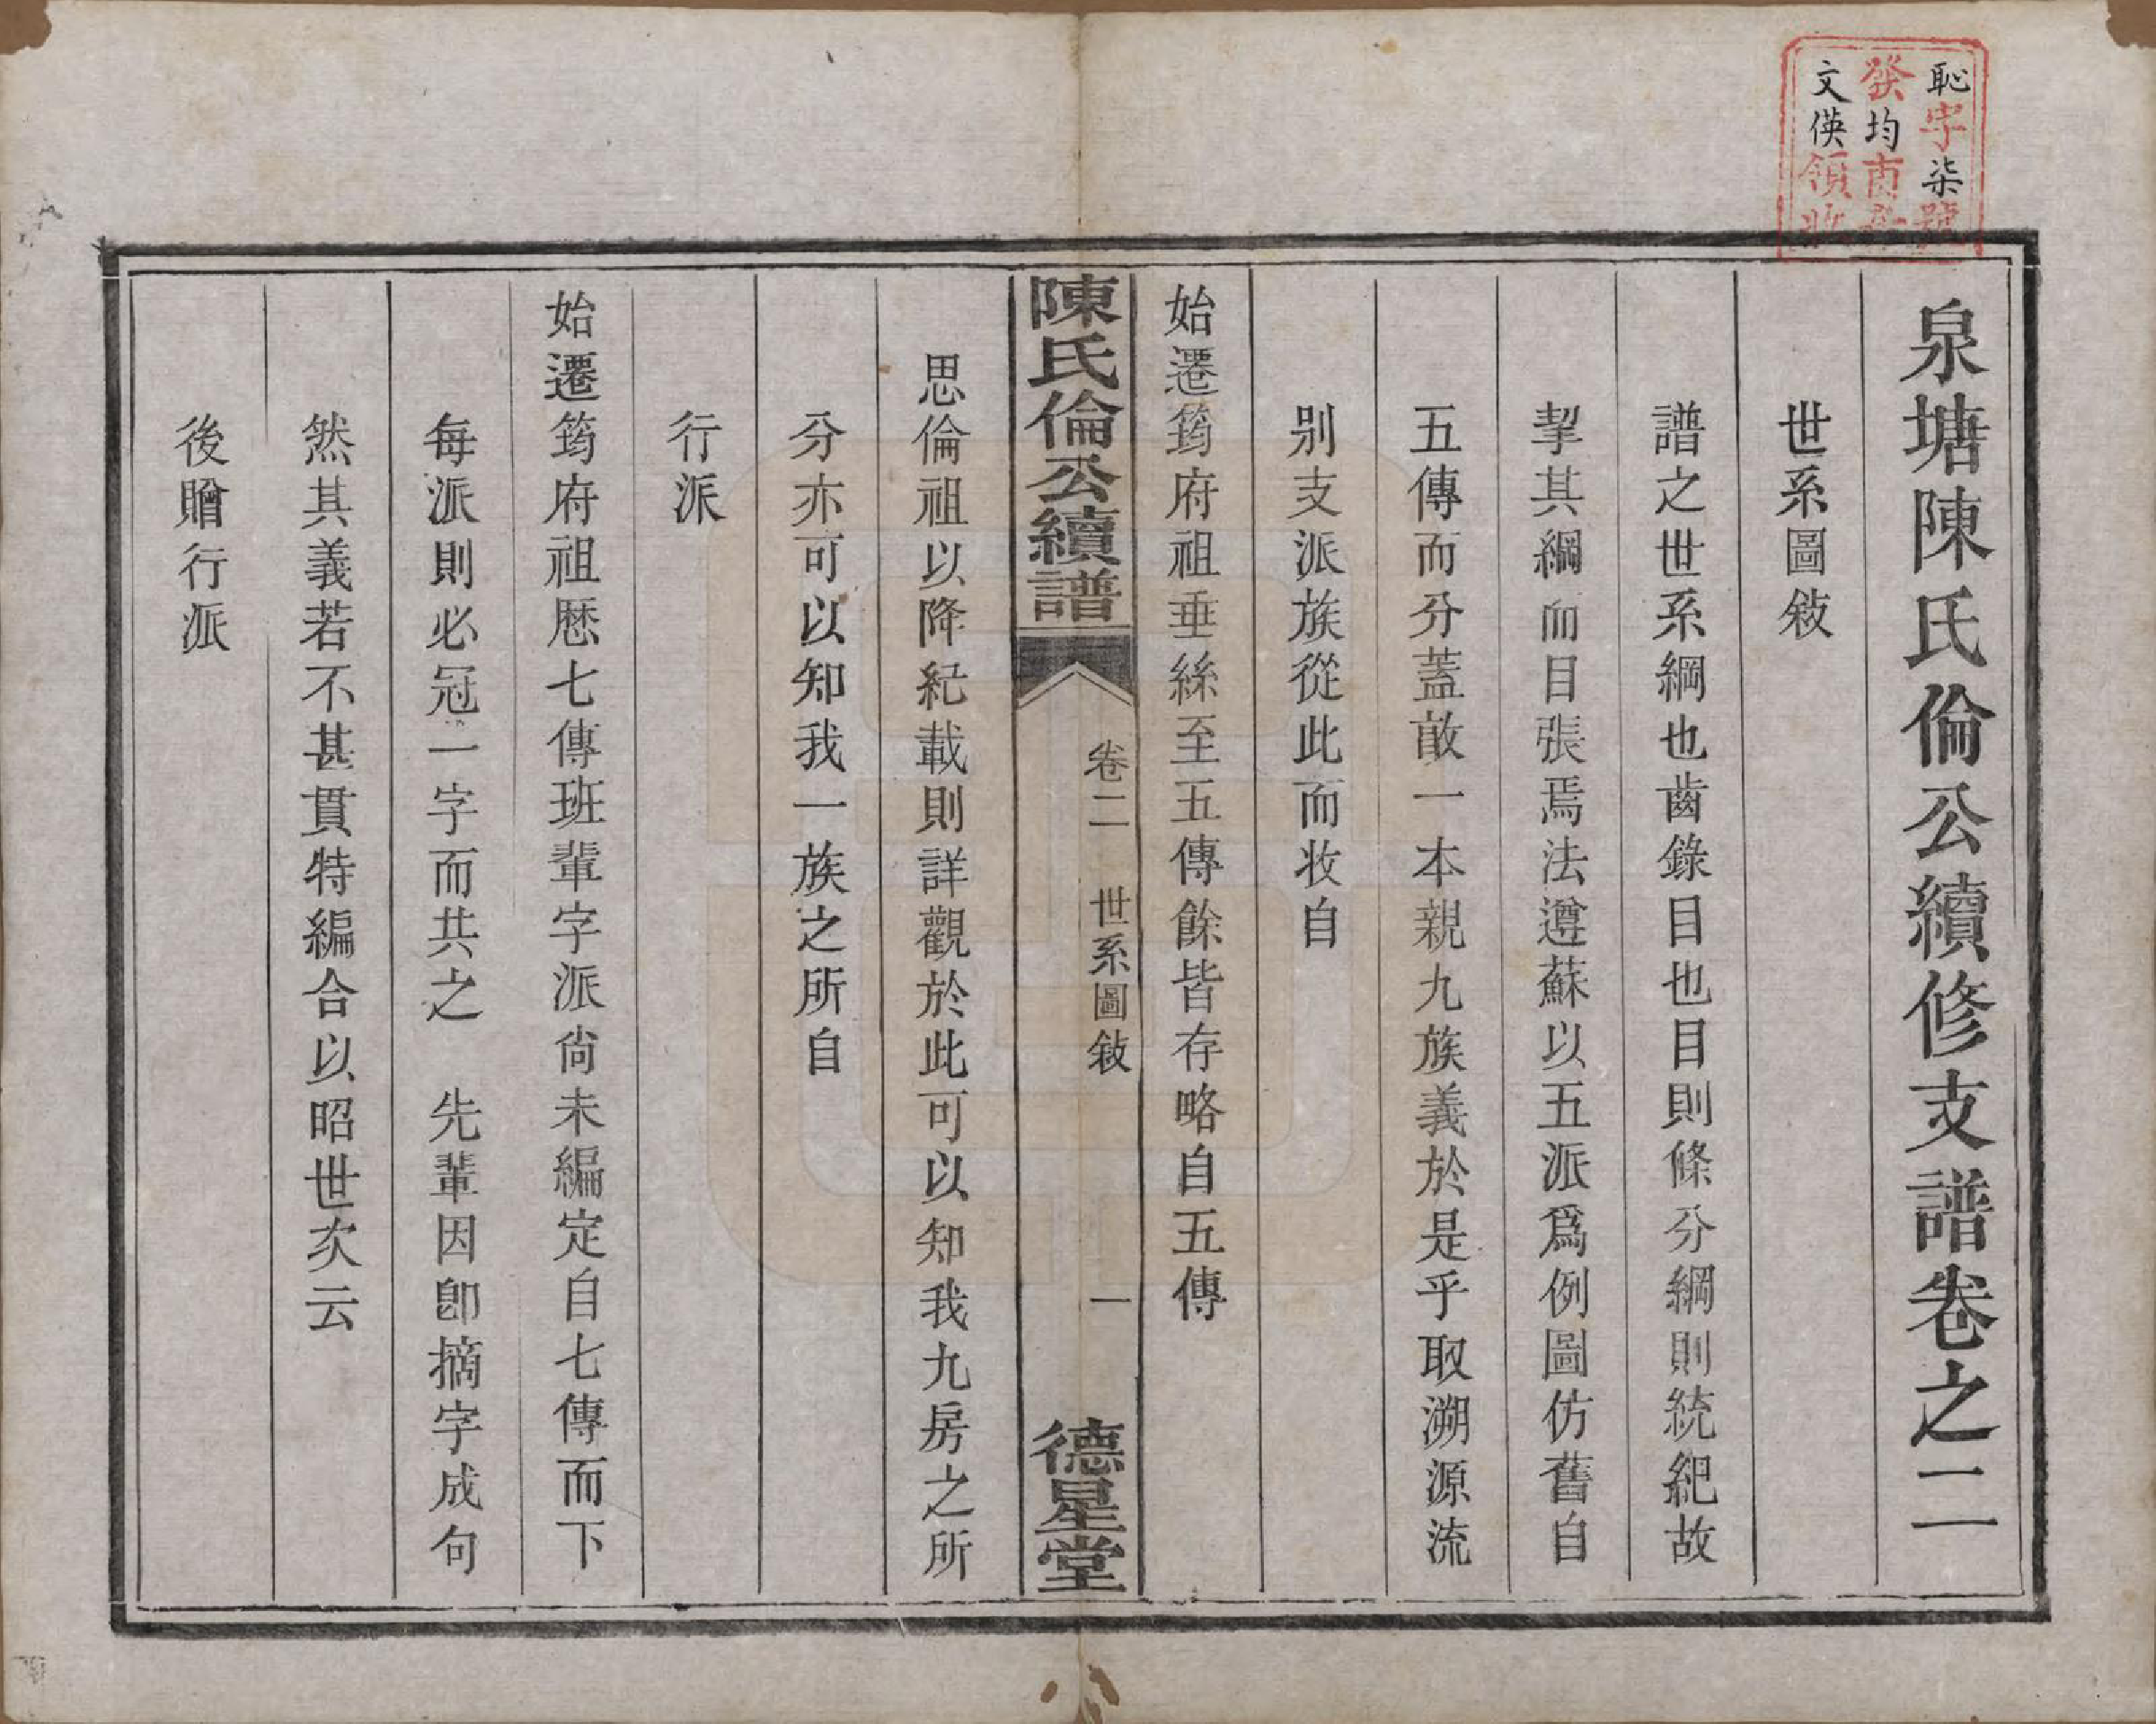 恥字柒號
發均
文偀領收
泉塘陳氏倫公續修支譜卷之二
世系圖敍
譜之世系綱也齒錄目也目則條分綱則統紀故
挈其綱而目張焉法遵蘇以五派爲例圖仿舊自
五傳而分蓋敢一本親九族義於是乎取溯源流
别支派族從此而收自
始遷筠府祖垂絲至五傳餘皆存略自五傳
陳氏倫公續譜
卷二 世系圖敍 一
德星堂
思倫祖以降紀載則詳觀於此可以知我九房之所
分亦可以知我一族之所自
行派
始遷筠府祖歷七傳班輩字派尙未編定自七傳而下
每派則必冠一字而共之 先輩因卽摘字成句
然其義若不甚貫特編合以昭世次云
後贈行派